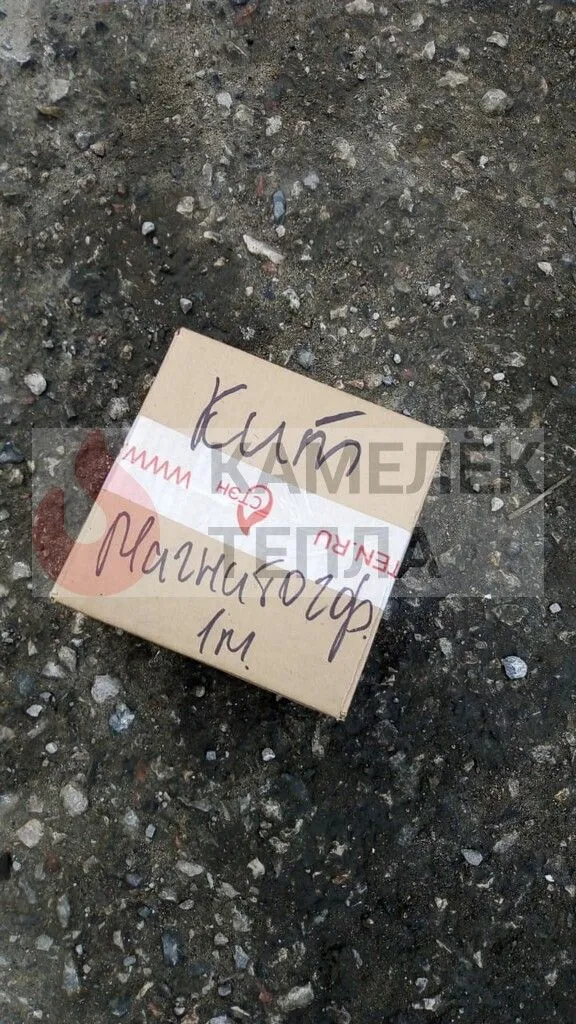 Кит
WWW.
СТЭН
TEN.RU
Магнитогф.
1м.
КАМЕЛЁК
ТЕПЛА